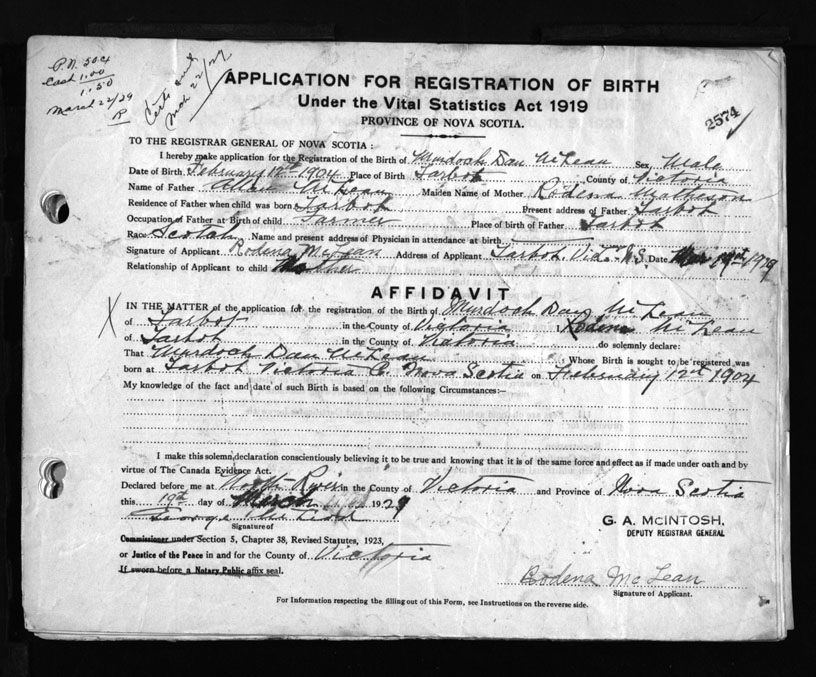 P.N. 504
Cash 1.00
1.50
March 22/29
R
Mch 22/29
APPLICATION FOR REGISTRATION OF BIRTH
Under the Vital Statistics Act 1919
2574
PROVINCE OF NOVA SCOTIA.
TO THE REGISTRAR GENERAL OF NOVA SCOTIA:
I hereby make application for the Registration of the Birth of Murdoch Dan McLean Sex Male
Date of Birth February 12th 1904 Place of Birth Tarbot County of Victoria
Name of Father McLean Maiden Name of Mother Rodena Matheson
Residence of Father when child was born Tarbot Present address of Father Tarbot
Occupation of Father at Birth of child Farmer Place of birth of Father Tarbot
Race Scotch Name and present address of Physician in attendance at birth
Signature of Applicant Rodena McLean Address of Applicant Tarbot, Vic. Co. N.S. Date Mar 19th 1929
Relationship of Applicant to child Mother
AFFIDAVIT
IN THE MATTER of the application for the registration of the Birth of Murdoch Dan McLean
of Tarbot in the County of Victoria I, Rodena McLean
of Tarbot in the County of Victoria do solemnly declare:
That Murdoch Dan McLean Whose Birth is sought to be registered was
born at Tarbot Victoria Co. Nova Scotia on February 12th 1904
My knowledge of the fact and date of such Birth is based on the following Circumstances:—
I make this solemn declaration conscientiously believing it to be true and knowing that it is of the same force and effect as if made under oath and by
virtue of The Canada Evidence Act.
Declared before me at North River in the County of Victoria and Province of Nova Scotia
this 19th day of March 1929
George McLeod
Signature of
G. A. McINTOSH,
DEPUTY REGISTRAR GENERAL
Commissioner under Section 5, Chapter 38, Revised Statutes, 1923,
or Justice of the Peace in and for the County of Victoria
If sworn before a Notary Public affix seal.
Rodena McLean
Signature of Applicant.
For Information respecting the filling out of this Form, see Instructions on the reverse side.